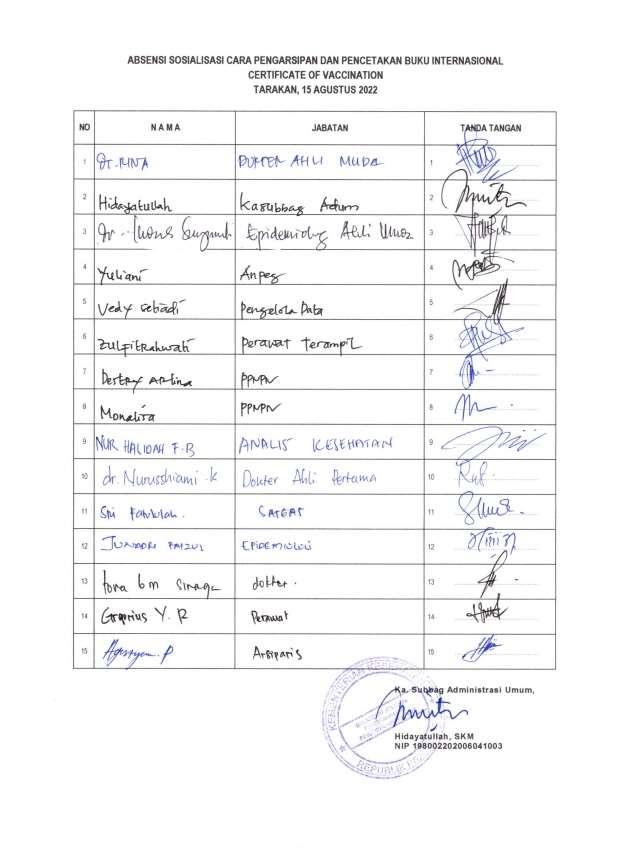 ABSENSI SOSIALISASI CARA PENGARSIPAN DAN PENCETAKAN BUKU INTERNASIONAL
CERTIFICATE OF VACCINATION
TARAKAN, 15 AGUSTUS 2022
NO N A M A JABATAN TANDA TANGAN
1 Dr. RINA DOKTER AHLI MUDA 1
2 Hidayatullah Kasubbag Adum 2
3 dr. Epidemiolog Ahli 3
4 Yuliani Anpeg 4
5 Vedy Setiadi Pengelola Data 5
6 Zulfitrahwati Perawat Terampil 6
7 Destry Arlina PPNPN 7
8 Monalisa PPNPN 8
9 NUR HALIDAH F.B ANALIS KESEHATAN 9
10 dr. Nurusshiami .K Dokter Ahli Pertama 10
11 Sri SATGAS 11
12 FAIZUL EPIDEMIOLOG 12
13 bm Sinaga dokter. 13
14 Y. R Perawat 14
15 P Arsiparis 15
Ka. Subbag Administrasi Umum,
Hidayatullah, SKM
NIP 198002202006041003
KEMENTERIAN
REPUBLIK